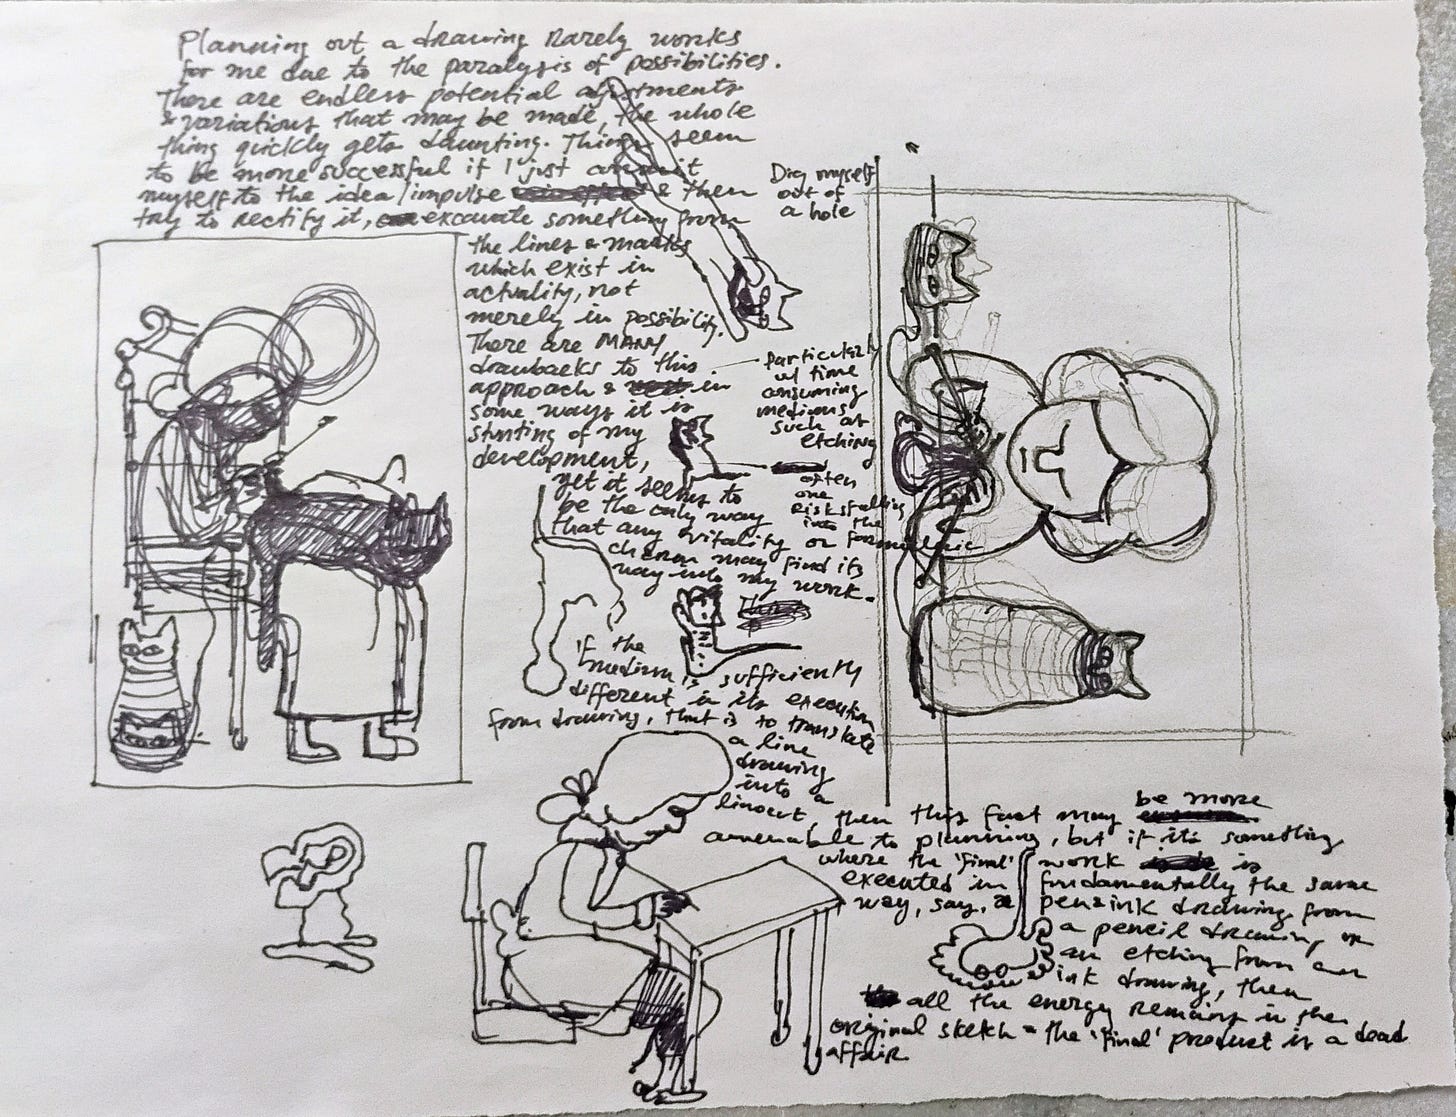 Planning out a drawing rarely works
for me due to the paralysis of possibilities.
There are endless potential adjustments
& variations that may be made, the whole
thing quickly gets daunting. Things seem
to be more successful if I just commit
myself to the idea/impulse & then
try to rectify it, excavate something from
the lines & marks
which exist in
actuality, not
merely in possibility.
There are MANY
drawbacks to this
approach & in
some ways it is
stunting of my
development,
yet it seems to
be the only way
that any vitality or
charm may find its
way into my work.
Dig myself
out of
a hole
Particularly
w/ time
consuming
mediums
such as
etching
often
one
risks falling
into the
formulaic
If the
medium is sufficiently
different in its execution
from drawing, that is to translate
a line
drawing
into a
linocut, then this fact may be more
amenable to planning, but if it's something
where the 'final' work is
executed in fundamentally the same
way, say, a pen & ink drawing from
a pencil drawing or
an etching from an
ink drawing, then
all the energy remains in the
original sketch & the 'final' product is a dead
affair